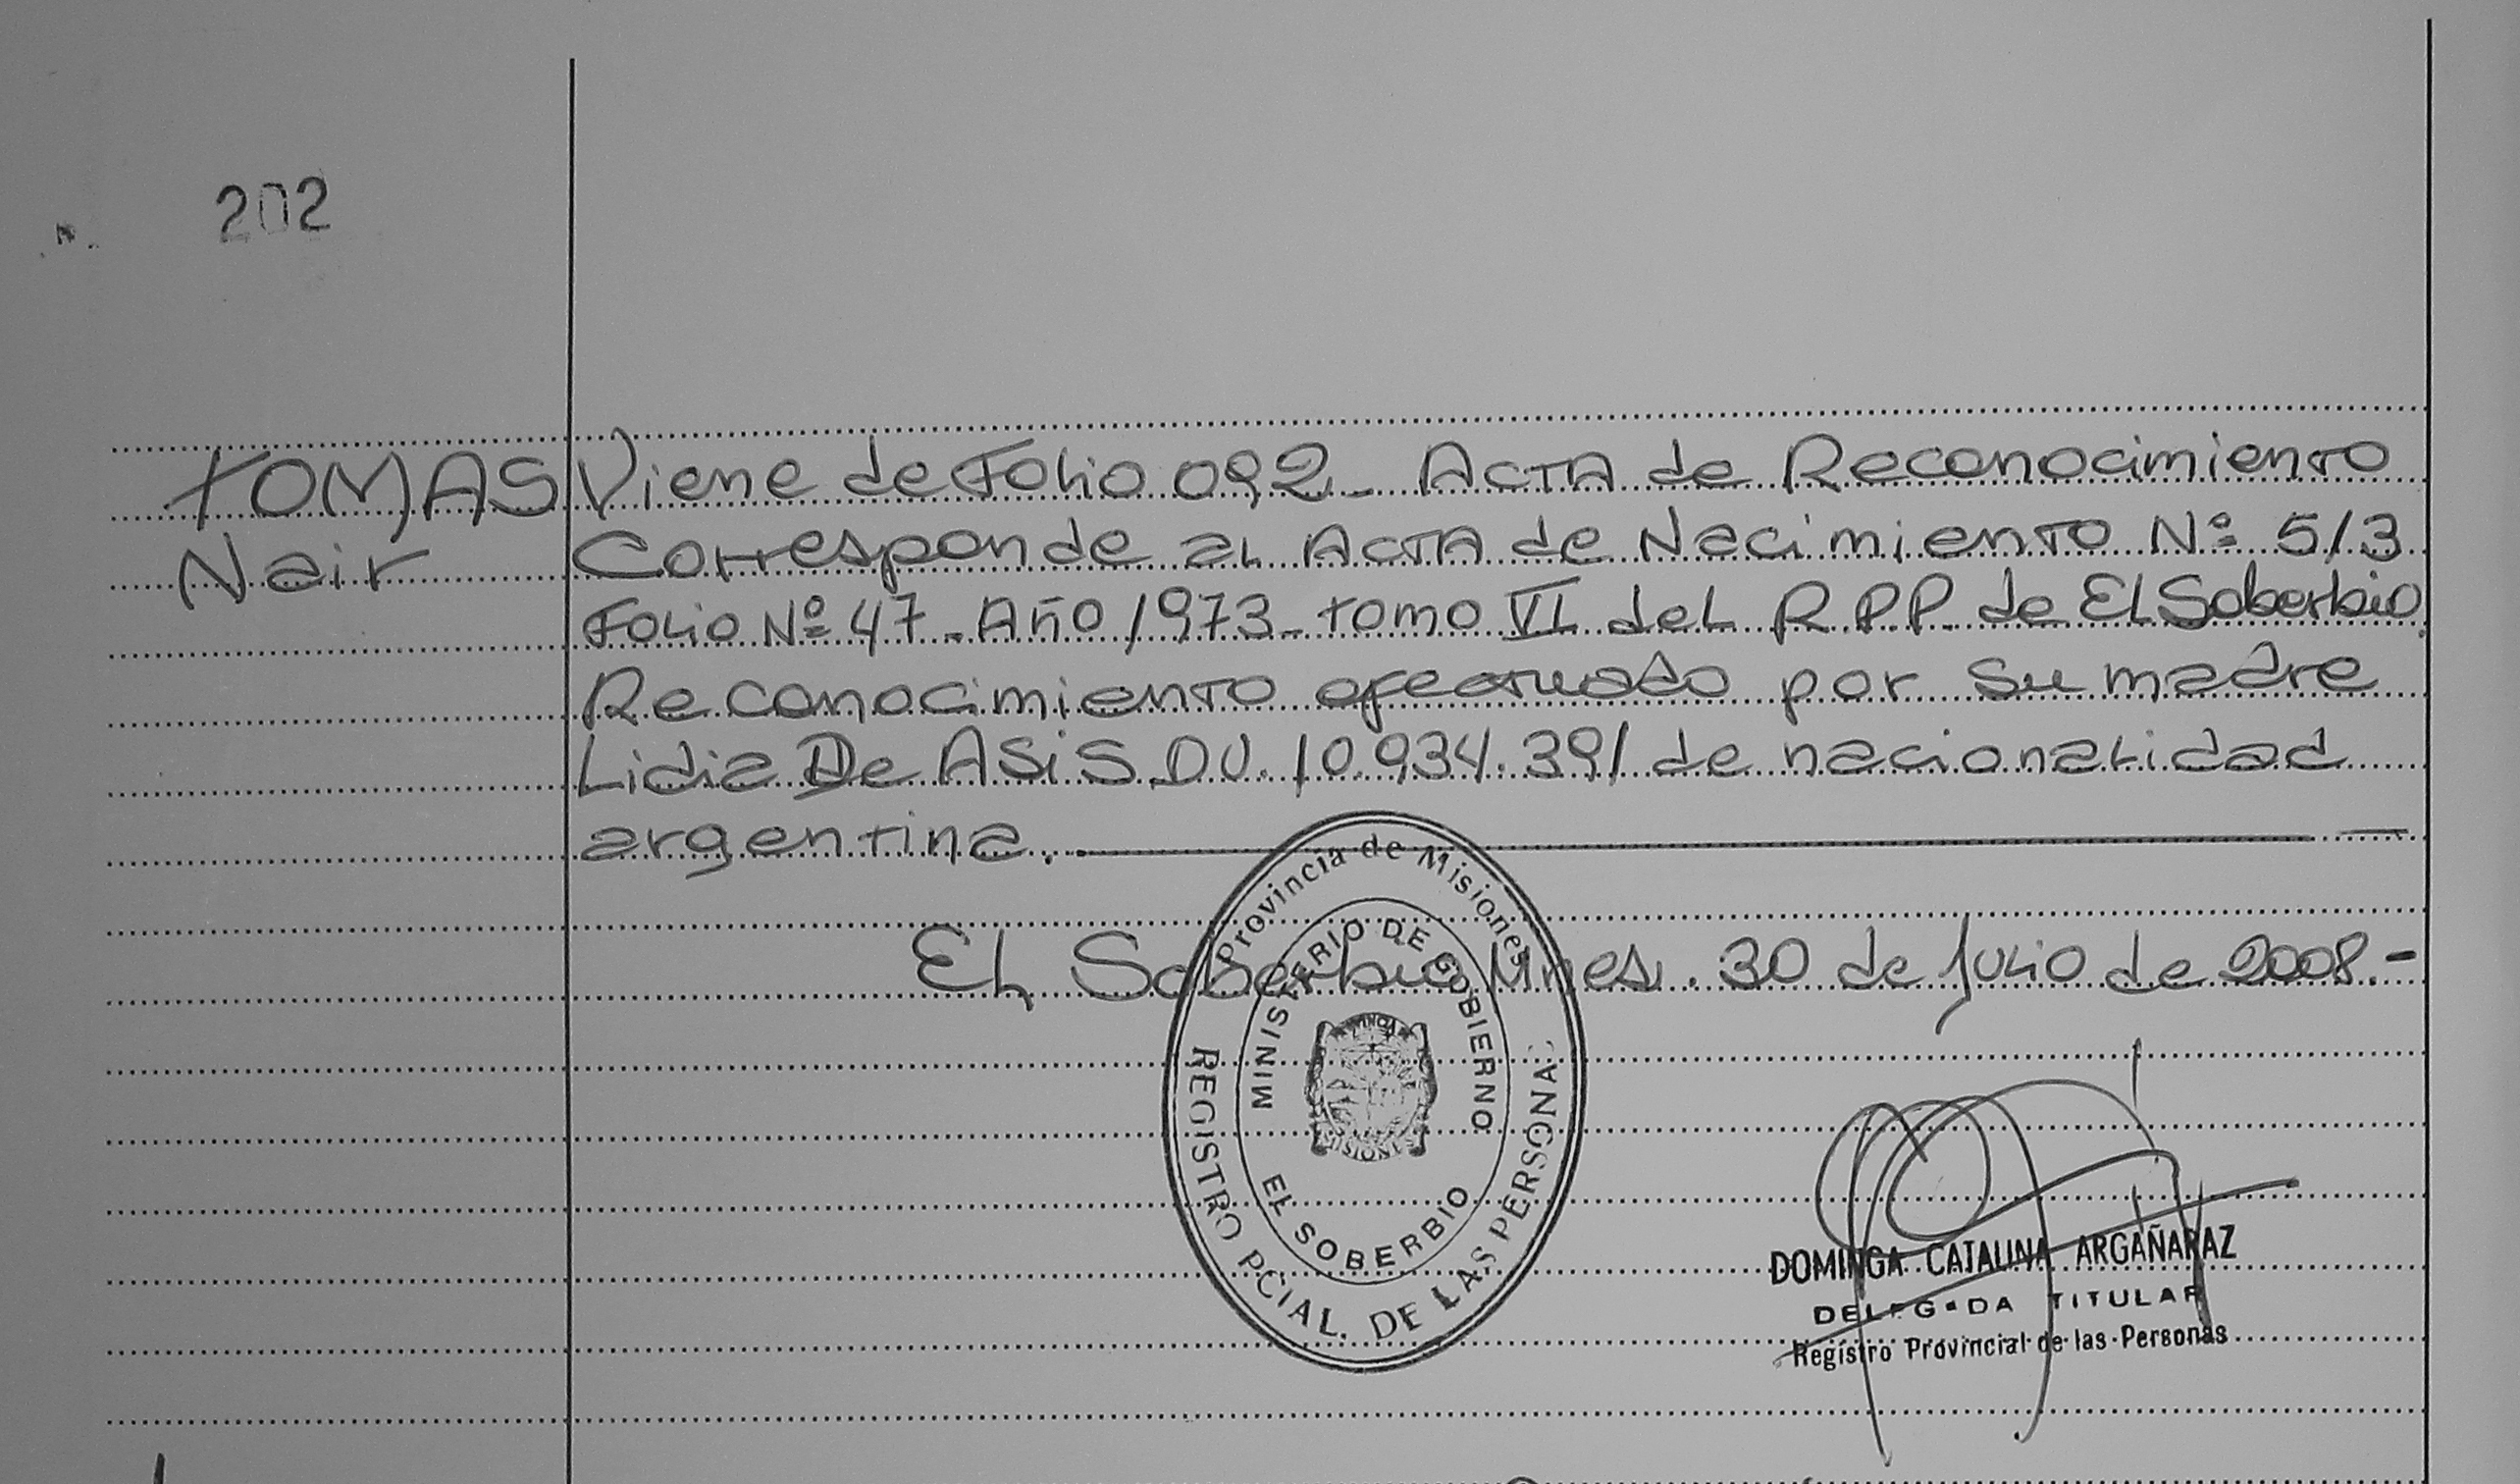 202
TOMAS
Nair
Viene de Folio 092_ ACTA de Reconocimiento
Corresponde al ACTA de Nacimiento Nº 513
Folio Nº 47_ Año 1973_ tomo VI del R.P.P. de El Soberbio.
Reconocimiento efectuado por su madre
Lidia De ASiS DU. 10.934.391 de nacionalidad
argentina._
El Soberbio Mnes. 30 de Julio de 2008.-
Provincia de Misiones
MINISTERIO DE GOBIERNO
EL SOBERBIO
REGISTRO PCIAL. DE LAS PERSONAS
DOMINGA CATALINA ARGAÑARAZ
DELEGADA TITULAR
Registro Provincial de las Personas